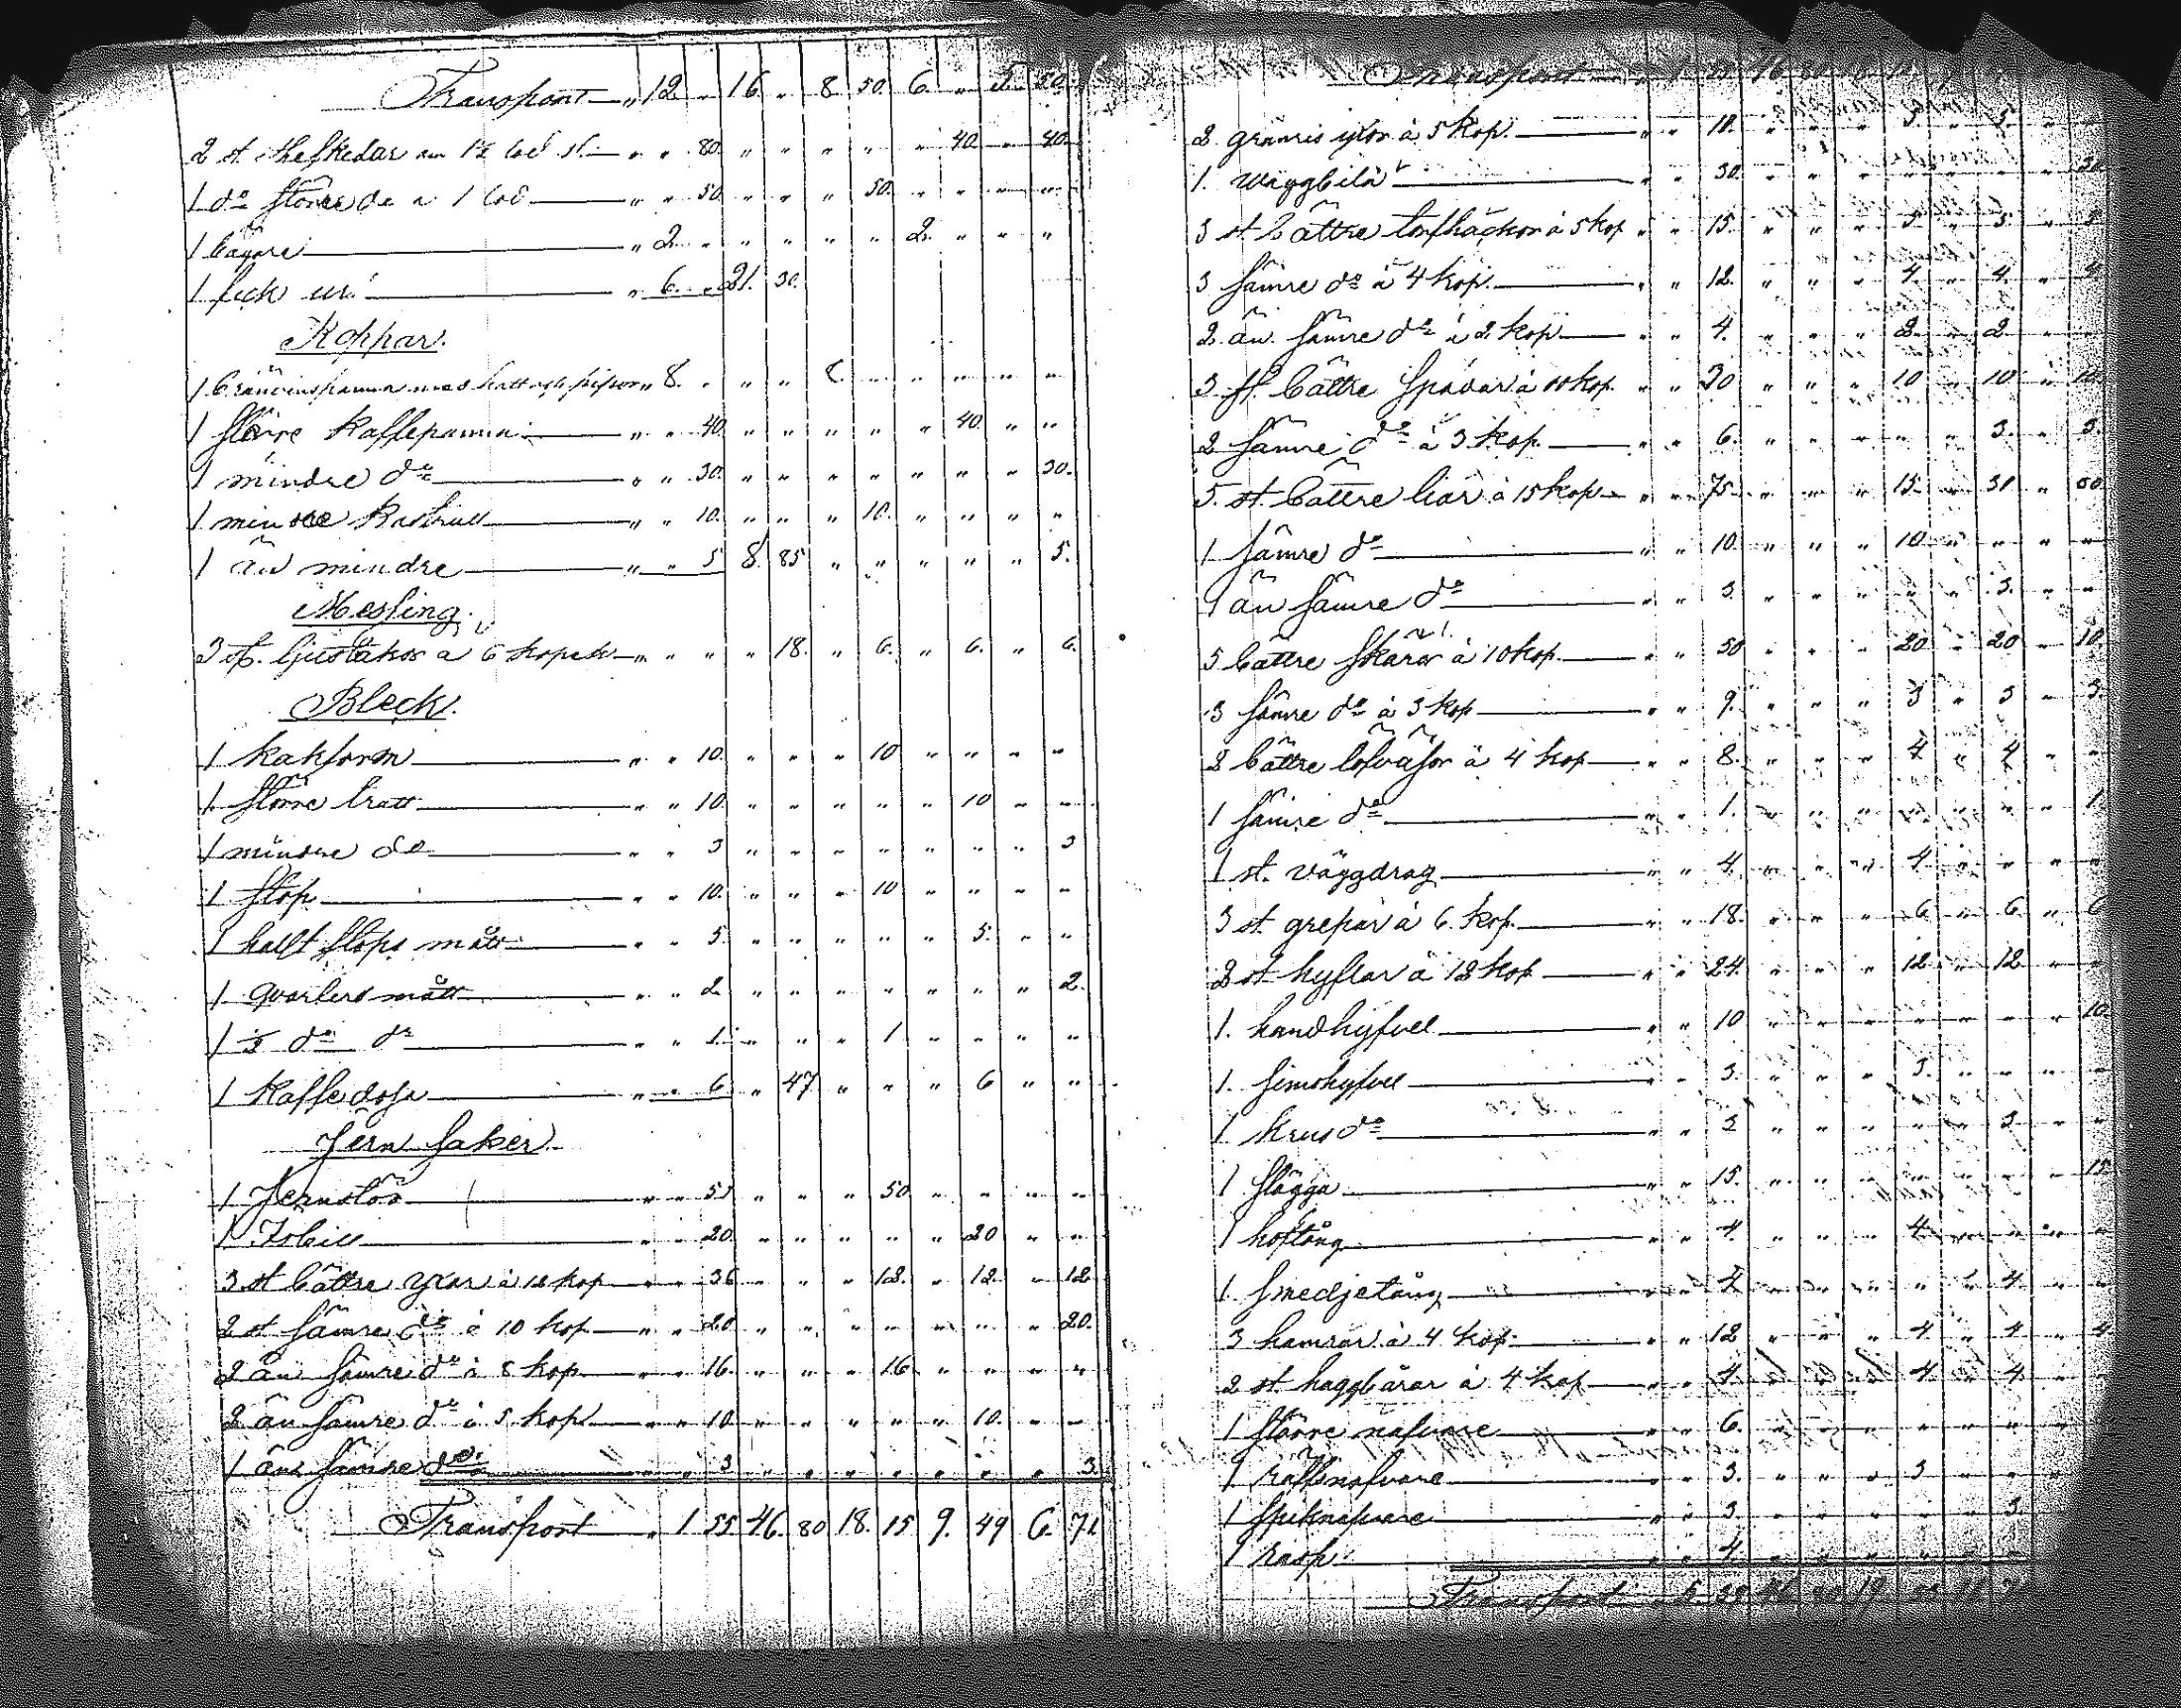 Transport " 12 " 16 " 8 50 6 " 5 50
2 st. theskedar om 1½ lod st. " " 80 " " " " " 40 " 40
1 do större do a 1 lod " " 50 " " " 50 " " " "
1 bägare " 2 " " " " " 2 " " "
1 fick ur " 6 " 21 30
Koppar.
1 brännvinspanna med hatt och pipor " 8 " " " 8 " " " " "
1 större kaffepanna " " 40 " " " " " 40 " "
1 mindre do " " 30 " " " " " " " 30
1 mindre Kastrull " " 10 " " " 10 " " " "
1 än mindre " " 5 8 85 " " " " " 5
Messing.
3 st. ljusstakar a 6 kopek " " " " 18 " 6 " 6 " 6
Bleck.
1 kakform " " 10 " " " 10 " " " "
1 större tratt " " 10 " " " " " 10 " "
1 mindre do " " 3 " " " " " " " 3
1 stop " " 10 " " " 10 " " " "
1 halft stops mått " " 5 " " " " " 5 " "
1 qvarters mått " " 2 " " " " " " " 2
1 do do " " 1 " " " 1 " " " "
1 Kaffedosa " " 6 " 47 " " " 6 " "
Jern saker
1 Jernstör " " 50 " " " 50 " " " "
1 Isbill " " 20 " " " " " 20 " "
3 st bättre yxor à 12 kop " " 36 " " " 12 " 12 " 12
2 st sämre do à 10 kop " " 20 " " " " " " " 20
2 än sämre do à 8 kop " " 16 " " " 16 " " " "
2 än sämre do à 5 kop " " 10 " " " " " 10 " "
1 än sämre do " " 3 " " " " " " " 3
Transport " 1 55 46 80 18 15 9 49 6 71
Transport
2 granris yxor à 5 kop. " " 10 " " " 5 " 5 " "
1. väggbila " " 30 " " " " " " " 30
3 st bättre torfhackor à 5 kop " " 15 " " " 5 " 5 " 5
3 sämre do à 4 kop. " " 12 " " " 4 " 4 " 4
2 än sämre do à 2 kop " " 4 " " " 2 " 2 " "
3 st. bättre spadar à 10 kop. " " 30 " " " 10 " 10 " 10
2 sämre do à 3 kop. " " 6 " " " " " 3 " 3
5 st. bättre liar à 15 kop " " 75 " " " 15 " "
1 sämre do " " 10 " " " 10 " " " "
1 än sämre do " " 3 " " " " " 3 " "
5 bättre skäror à 10 kop. " " 50 " " " 20 " 20 " 10
3 sämre do à 3 kop " " 9 " " " 3 " 3 " 3
2 bättre à 4 kop " " 8 " " " 4 " 4 " "
1 sämre do " " 1 " " " " " " " 1
1 st. väggdrag " " 4 " " " 4 " " " "
3 st grepar à 6 kop. " " 18 " " " 6 " 6 " 6
2 st hyflar à 12 kop " " 24 " " " 12 " 12 " "
1. handhyfvel " " 10 " " " " " " " 10
1. simshyfvel " " 3 " " " 3 " " " "
1 krus do " " 3 " " " " " 3 " "
1 slägga " " 15 " " " " " " " 15
1 hoftång " " 4 " " " 4 " " " "
1. smedjetång " " 4 " " " " " 4 " "
3 hamrar à 4 kop " " 12 " " " 4 " 4 " 4
2 st. à 4 kop " " 4 " 4 " "
1 större nafvare " " 6 " " " " " " "
1 nafvare " " 3 " " " 3 " " "
1 spiknafvare " " 3 " " " " " 3 "
1 rasp " " 4 " " " " " " "
Transport